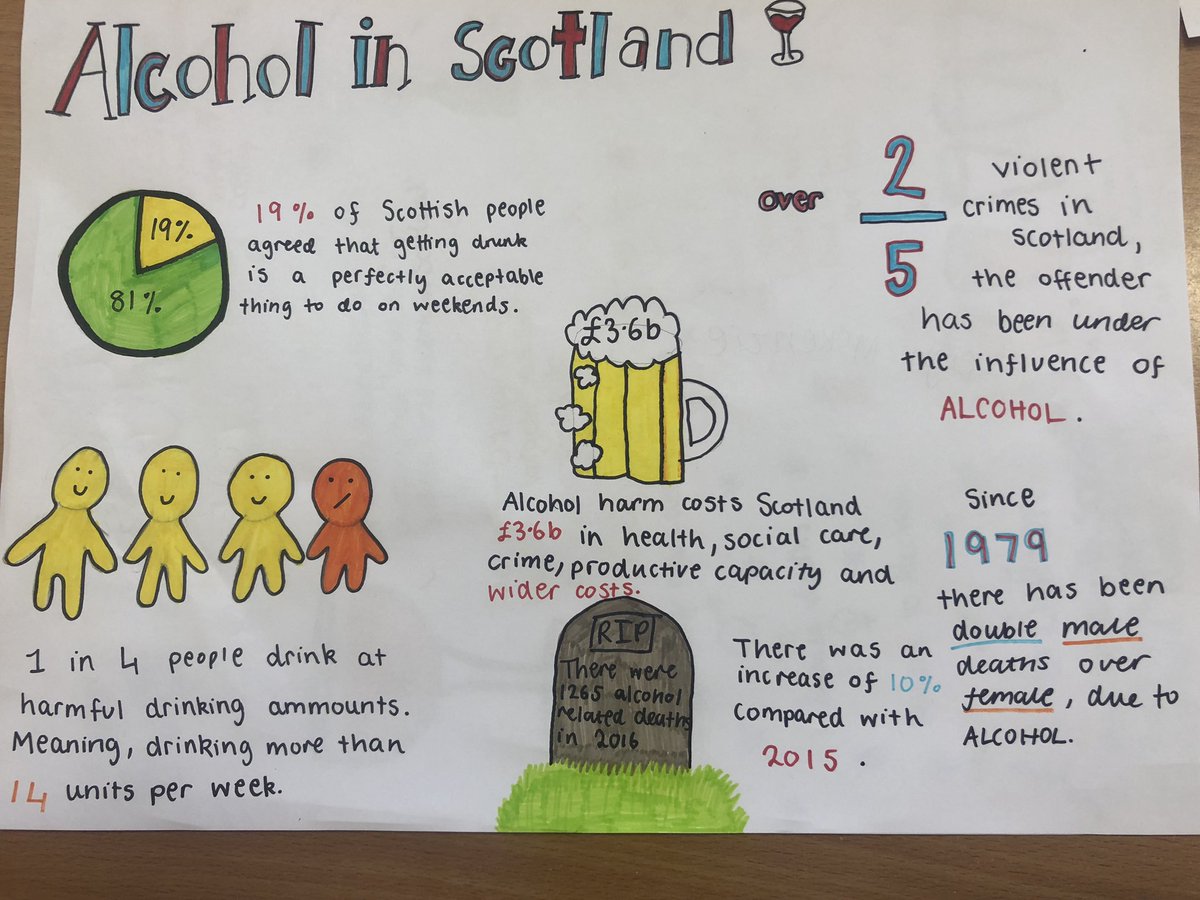 Alcohol in Scotland
19%
81%
19% of Scottish people
agreed that getting drunk
is a perfectly acceptable
thing to do on weekends.
over 2/5 violent
crimes in
scotland,
the offender
has been under
the influence of
ALCOHOL.
£3.6b
Alcohol harm costs Scotland
£3.6b in health, social care,
crime, productive capacity and
wider costs.
1 in 4 people drink at
harmful drinking ammounts.
Meaning, drinking more than
14 units per week.
RIP
There were
1265 alcohol
related deaths
in 2016
There was an
increase of 10%
compared with
2015.
Since
1979
there has been
double male
deaths over
female, due to
ALCOHOL.